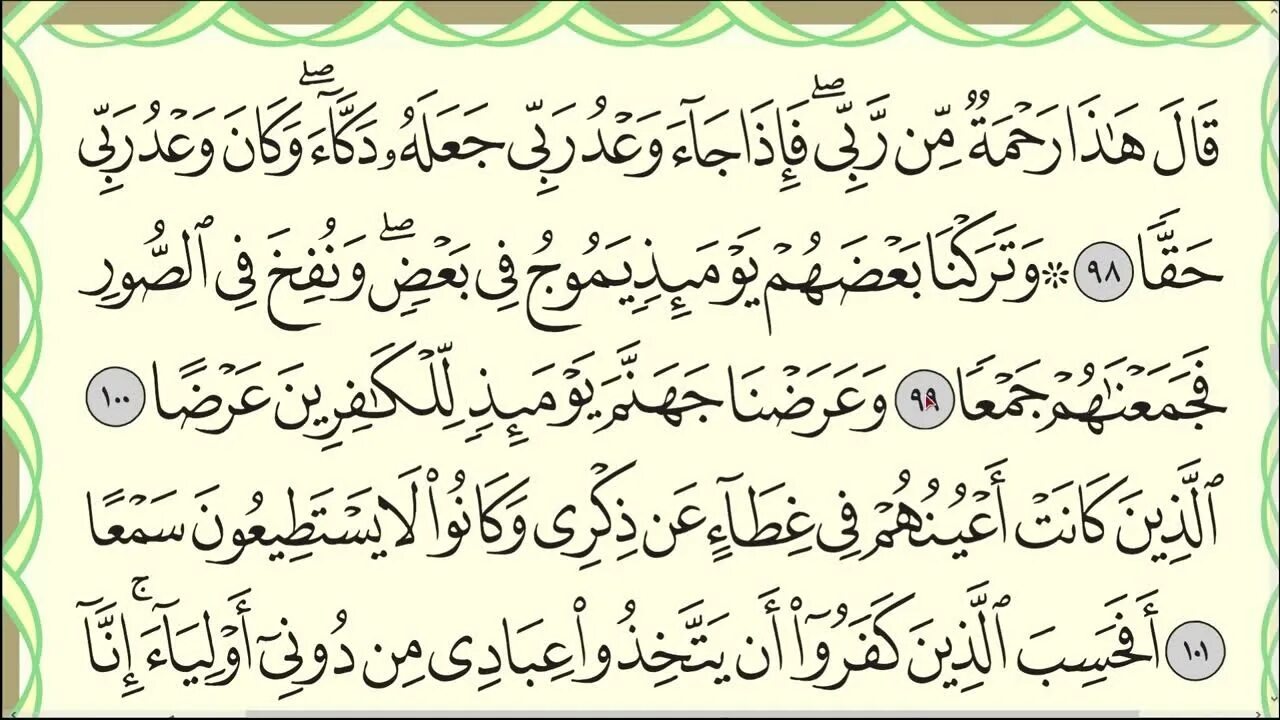 قَالَ هَٰذَا رَحْمَةٌ مِّن رَّبِّي ۖ فَإِذَا جَآءَ وَعْدُ رَبِّي جَعَلَهُۥ دَكَّآءَ ۖ وَكَانَ وَعْدُ رَبِّي
حَقًّا ٩٨ ۞ وَتَرَكْنَا بَعْضَهُمْ يَوْمَئِذٍ يَمُوجُ فِي بَعْضٍ ۖ وَنُفِخَ فِي ٱلصُّورِ
فَجَمَعْنَٰهُمْ جَمْعًا ٩٩ وَعَرَضْنَا جَهَنَّمَ يَوْمَئِذٍ لِّلْكَٰفِرِينَ عَرْضًا ١٠٠
ٱلَّذِينَ كَانَتْ أَعْيُنُهُمْ فِي غِطَآءٍ عَن ذِكْرِي وَكَانُوا۟ لَا يَسْتَطِيعُونَ سَمْعًا
١٠١ أَفَحَسِبَ ٱلَّذِينَ كَفَرُوٓا۟ أَن يَتَّخِذُوا۟ عِبَادِي مِن دُونِيٓ أَوْلِيَآءَ ۚ إِنَّآ